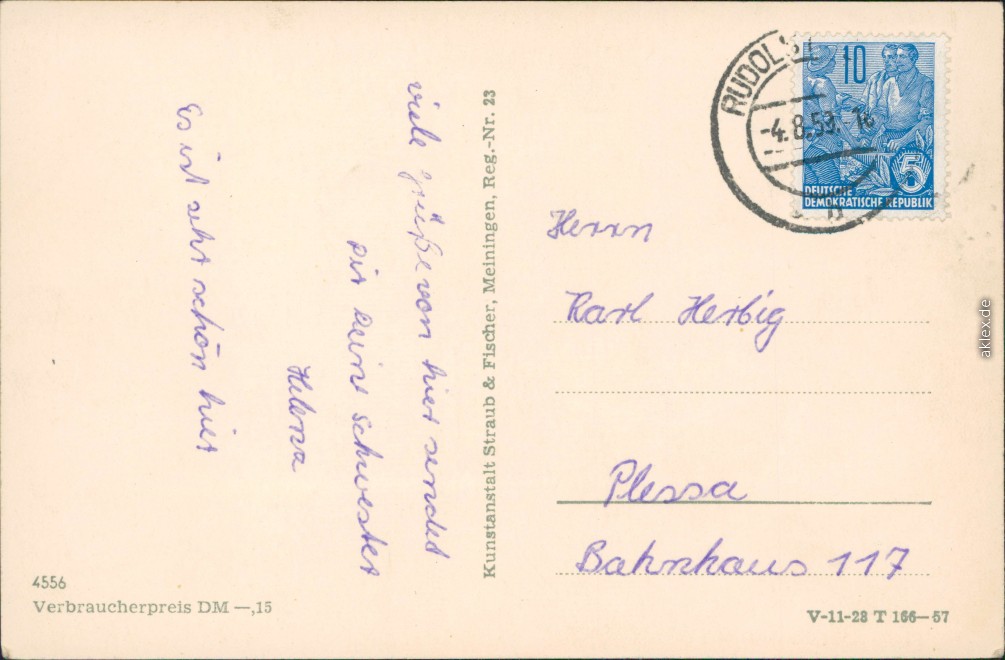 viele Grüße von hier sendet
Dir Deine Schwester
Helena
Es ist sehr schön hier
Kunstanstalt Straub & Fischer, Meiningen, Reg.-Nr. 23
RUDOLST
-4.8.59.
10
5
DEUTSCHE
DEMOKRATISCHE REPUBLIK
Herrn
Karl Herbig
Plessa
Bahnhaus 117
4556
Verbraucherpreis DM —,15
V-11-28 T 166—57
aklex.de